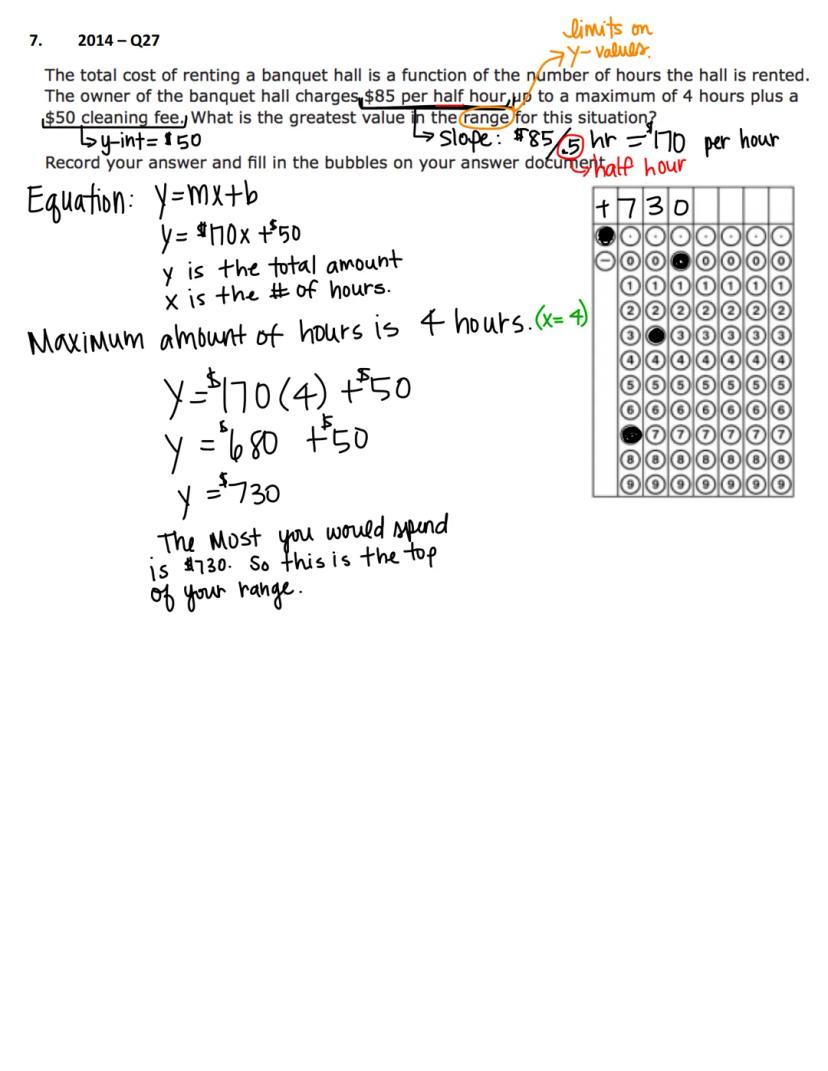 limits on
y-values.
7. 2014 – Q27
The total cost of renting a banquet hall is a function of the number of hours the hall is rented.
The owner of the banquet hall charges $85 per half hour up to a maximum of 4 hours plus a
$50 cleaning fee. What is the greatest value in the range for this situation?
y-int= $50
slope: $85/.5 hr = $170 per hour
Record your answer and fill in the bubbles on your answer document.
half hour
Equation: y=mx+b
y= $170x +$50
y is the total amount
x is the # of hours.
Maximum amount of hours is 4 hours. (x= 4)
y=$170(4) +$50
y =$680 +$50
y =$730
The Most you would spend
is $730. So this is the top
of your range.
+730
− 0 0 0 0 0 0
1 1 1 1 1 1 1
2 2 2 2 2 2 2
3 3 3 3 3 3
4 4 4 4 4 4 4
5 5 5 5 5 5 5
6 6 6 6 6 6 6
7 7 7 7 7 7
8 8 8 8 8 8 8
9 9 9 9 9 9 9